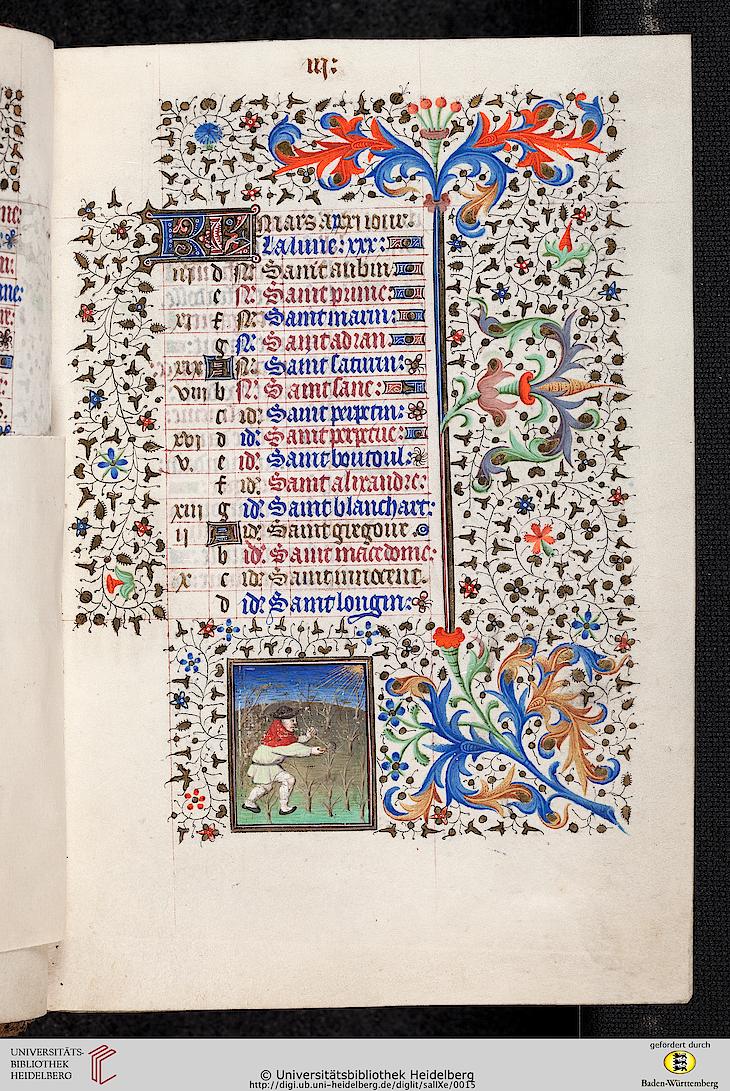 iij:
KL Mars a xxxi iour.
La lune: xxx:
iij d N: Saint aubin
c N: Saint prime:
xi f N: Saint marin:
g N: Saint adran
xix A N: Saint saturin:
viij b N: Saint sane:
c id: Saint perpetin:
xvi d id: Saint perpetue:
v. e id: Saint boutoul:
f Saint alixandre:
xiii g id: Saint blanchart:
ii A id: Saint gregoire.
b id: Saint macedome:
x c id: Saint innocent.
d id: Saint longin:
UNIVERSITÄTS-
BIBLIOTHEK
HEIDELBERG
© Universitätsbibliothek Heidelberg
http://digi.ub.uni-heidelberg.de/diglit/salIXe/0015
gefördert durch
Baden-Württemberg